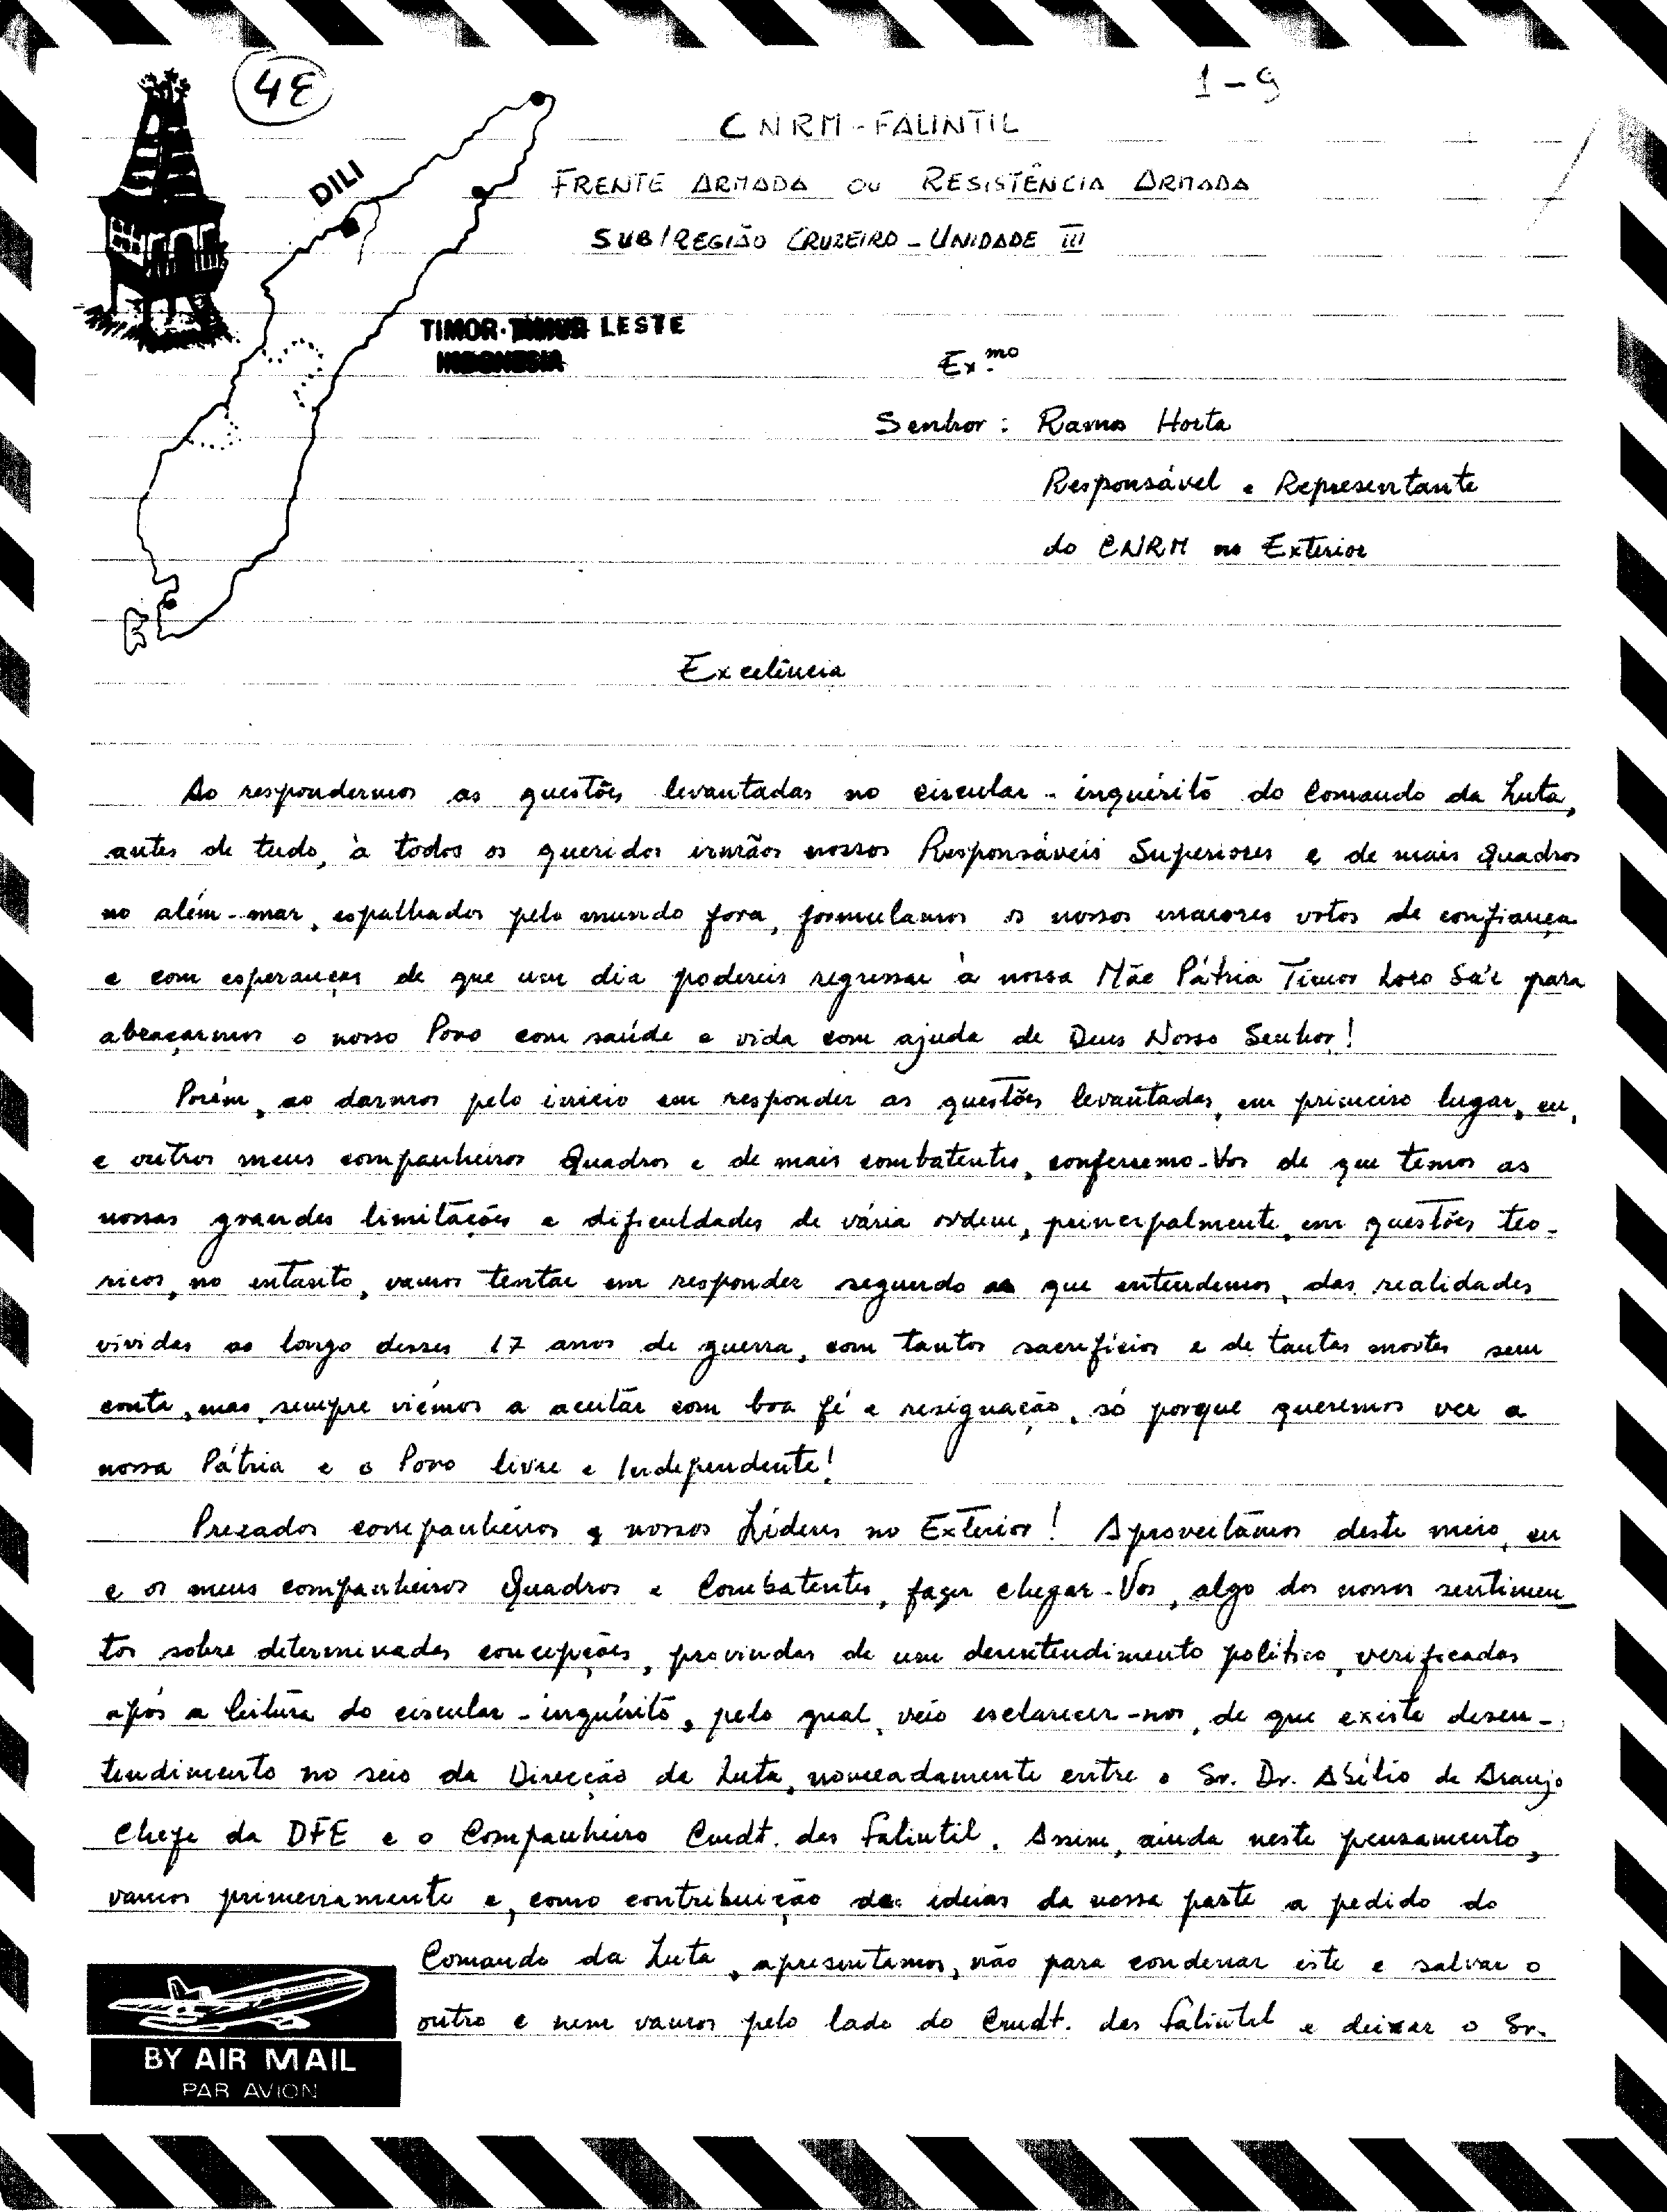 4E
1-9
CNRM-FALINTIL
DILI
FRENTE ARMADA OU RESISTÊNCIA ARMADA
SUB/REGIÃO CRUZEIRO - UNIDADE III
TIMOR- LESTE
Ex.mo
Senhor: Ramos Horta
Responsável e Representante
do CNRM no Exterior
Excelência
Ao respondermos as questões levantadas no circular-inquérito do Comando da Luta,
antes de tudo, à todos os queridos irmãos nossos Responsáveis Superiores e de mais Quadros
no além-mar, espalhados pelo mundo fora, formulamos os nossos maiores votos de confiança
e com esperanças de que um dia podereis regressar à nossa Mãe Pátria Timor Loro Sa'e para
abraçarmos o nosso Povo com saúde e vida com ajuda de Deus Nosso Senhor!
Porém, ao darmos pelo início em responder as questões levantadas, em primeiro lugar, eu,
e outros meus companheiros Quadros e de mais combatentes, conferemo-Vos de que temos as
nossas grandes limitações e dificuldades de vária ordem, principalmente, em questões teo-
ricos, no entanto, vamos tentar em responder segundo que entendemos, das realidades
vividas ao longo desses 17 anos de guerra, com tantos sacrifícios e de tantas mortes sem
conta, mas, sempre viémos a aceitar com boa fé e resignação, só porque queremos ver a
nossa Pátria e o Povo livre e Independente!
Prezados companheiros e nossos Líderes no Exterior! Aproveitámos deste meio, eu
e os meus companheiros Quadros e Combatentes, fazer chegar-Vos, algo dos nossos sentimen-
tos sobre determinadas concepções, provindas de um desentendimento político, verificadas
após a leitura do circular-inquérito, pelo qual, veio esclarecer-nos, de que existe desen-
tendimento no seio da Direcção da Luta, nomeadamente entre o Sr. Dr. Abílio de Araujo
Chefe da DFE e o Companheiro Cmdt. das Falintil. Assim, ainda neste pensamento,
vamos primeiramente e, como contribuição de ideias da nossa parte a pedido do
Comando da Luta, apresentamos, não para condenar este e salvar o
outro e nem vamos pelo lado do Cmdt. das Falintil e deixar o Sr.
BY AIR MAIL
PAR AVION